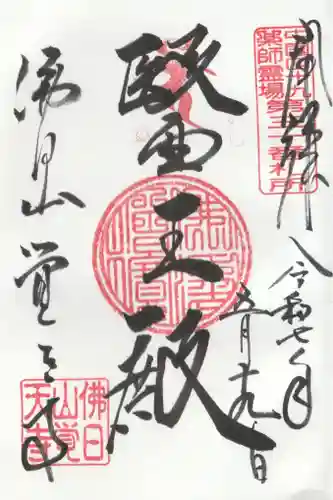 中国四十九
薬師霊場第三二番札所
令和七年
五月十九日
醫王殿
佛日山 覚天寺
佛日
山覚
天寺